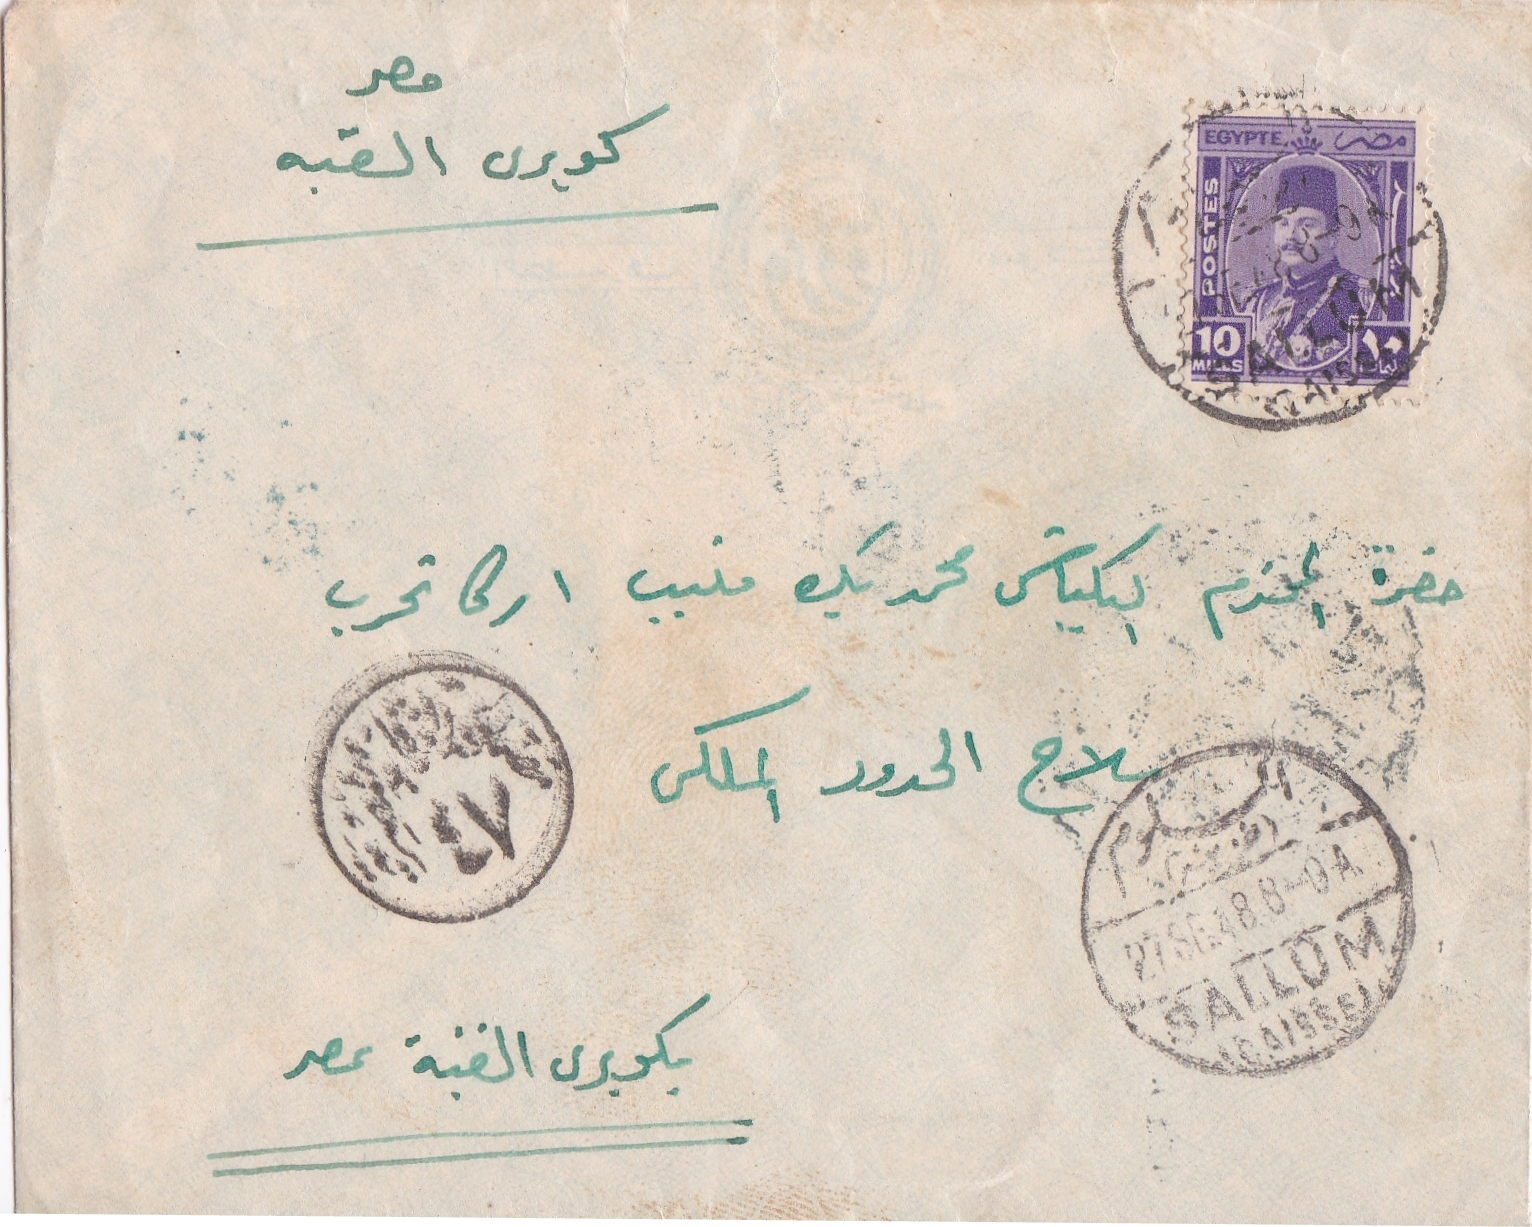 مصر
كوبرى القبه
EGYPTE مصر
POSTES
10 MILLS ١٠
SALLUM
CAISSE
حضرة المحترم البكباشى محمد بك منيب اركانحرب
سلاح الحدود الملكى
٤٧
السلوم
27 SE.48.8-0A
SALLUM
(CAISSE)
بكوبرى القبة بمصر